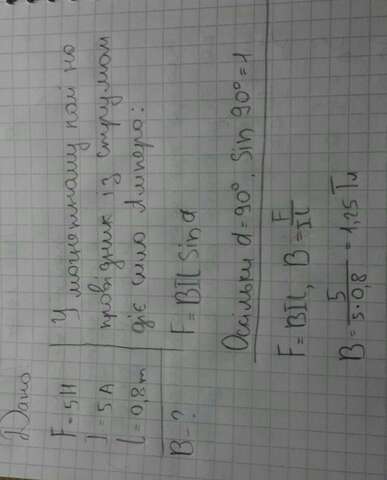 Дано
F = 5Н
I = 5А
l = 0,8m
B - ?
У магнітному полі на
провідник із струмом
діє сила Ампера:
F = BIl sin α
Оскільки α = 90°, sin 90° = 1
F = BIl, B = F/Il
B = 5/5·0,8 = 1,25 Тл